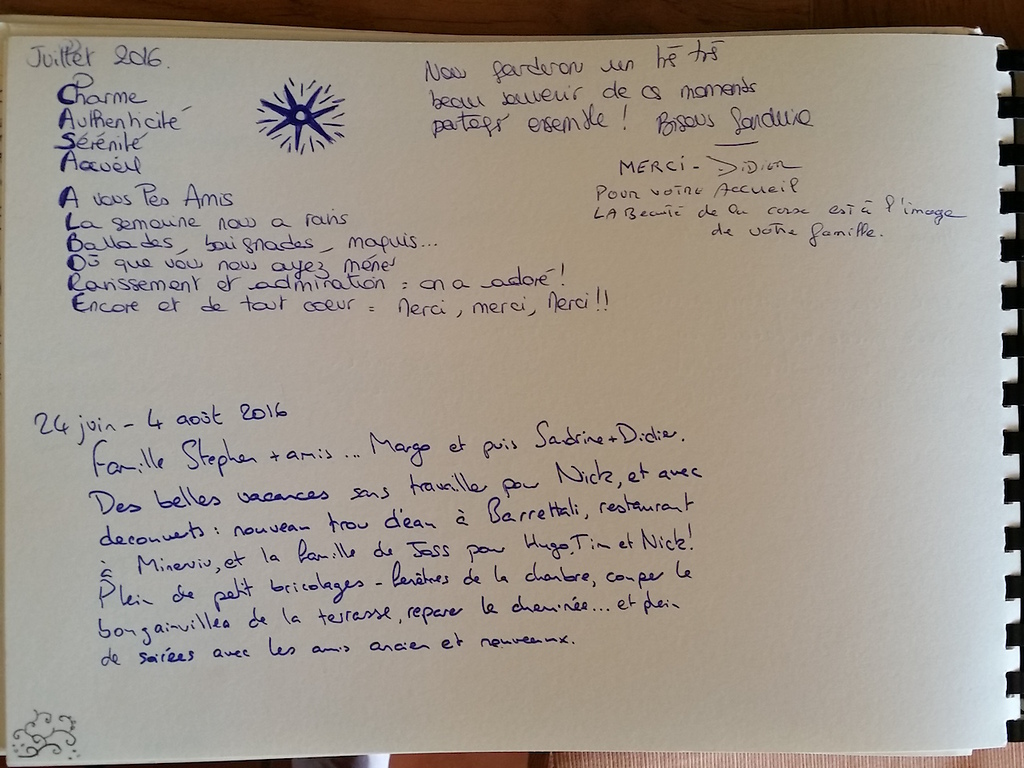 Juillet 2016.
Charme
Authenticité
Sérénité
Accueil
A vous Tes Amis
La semaine nous a ravis
Ballades, baignades, maquis...
Où que vous nous ayez menés
Ravissement et admiration : on a adoré !
Encore et de tout coeur : Merci, merci, Merci !!
Nous garderon un trè trè
beau souvenir de ces moments
partagés ensemble ! Bisous Sandrine
MERCI - Didier
Pour votre Accueil
LA Beauté de la corse est à l'image
de votre famille.
24 juin - 4 août 2016
Famille Stephen + amis... Margo et puis Sandrine + Didier.
Des belles vacances sans travailler pour Nick, et avec
decouverts : nouveau trou d'eau à Barrettali, restaurant
à Minerviu, et la famille de Joss pour Hugo, Tim et Nick!
Plein de petit bricolages - fenêtres de la chambre, couper le
bougainvilles de la terrasse, reparer le cheminée... et plein
de soirées avec les amis ancien et nouveaux.